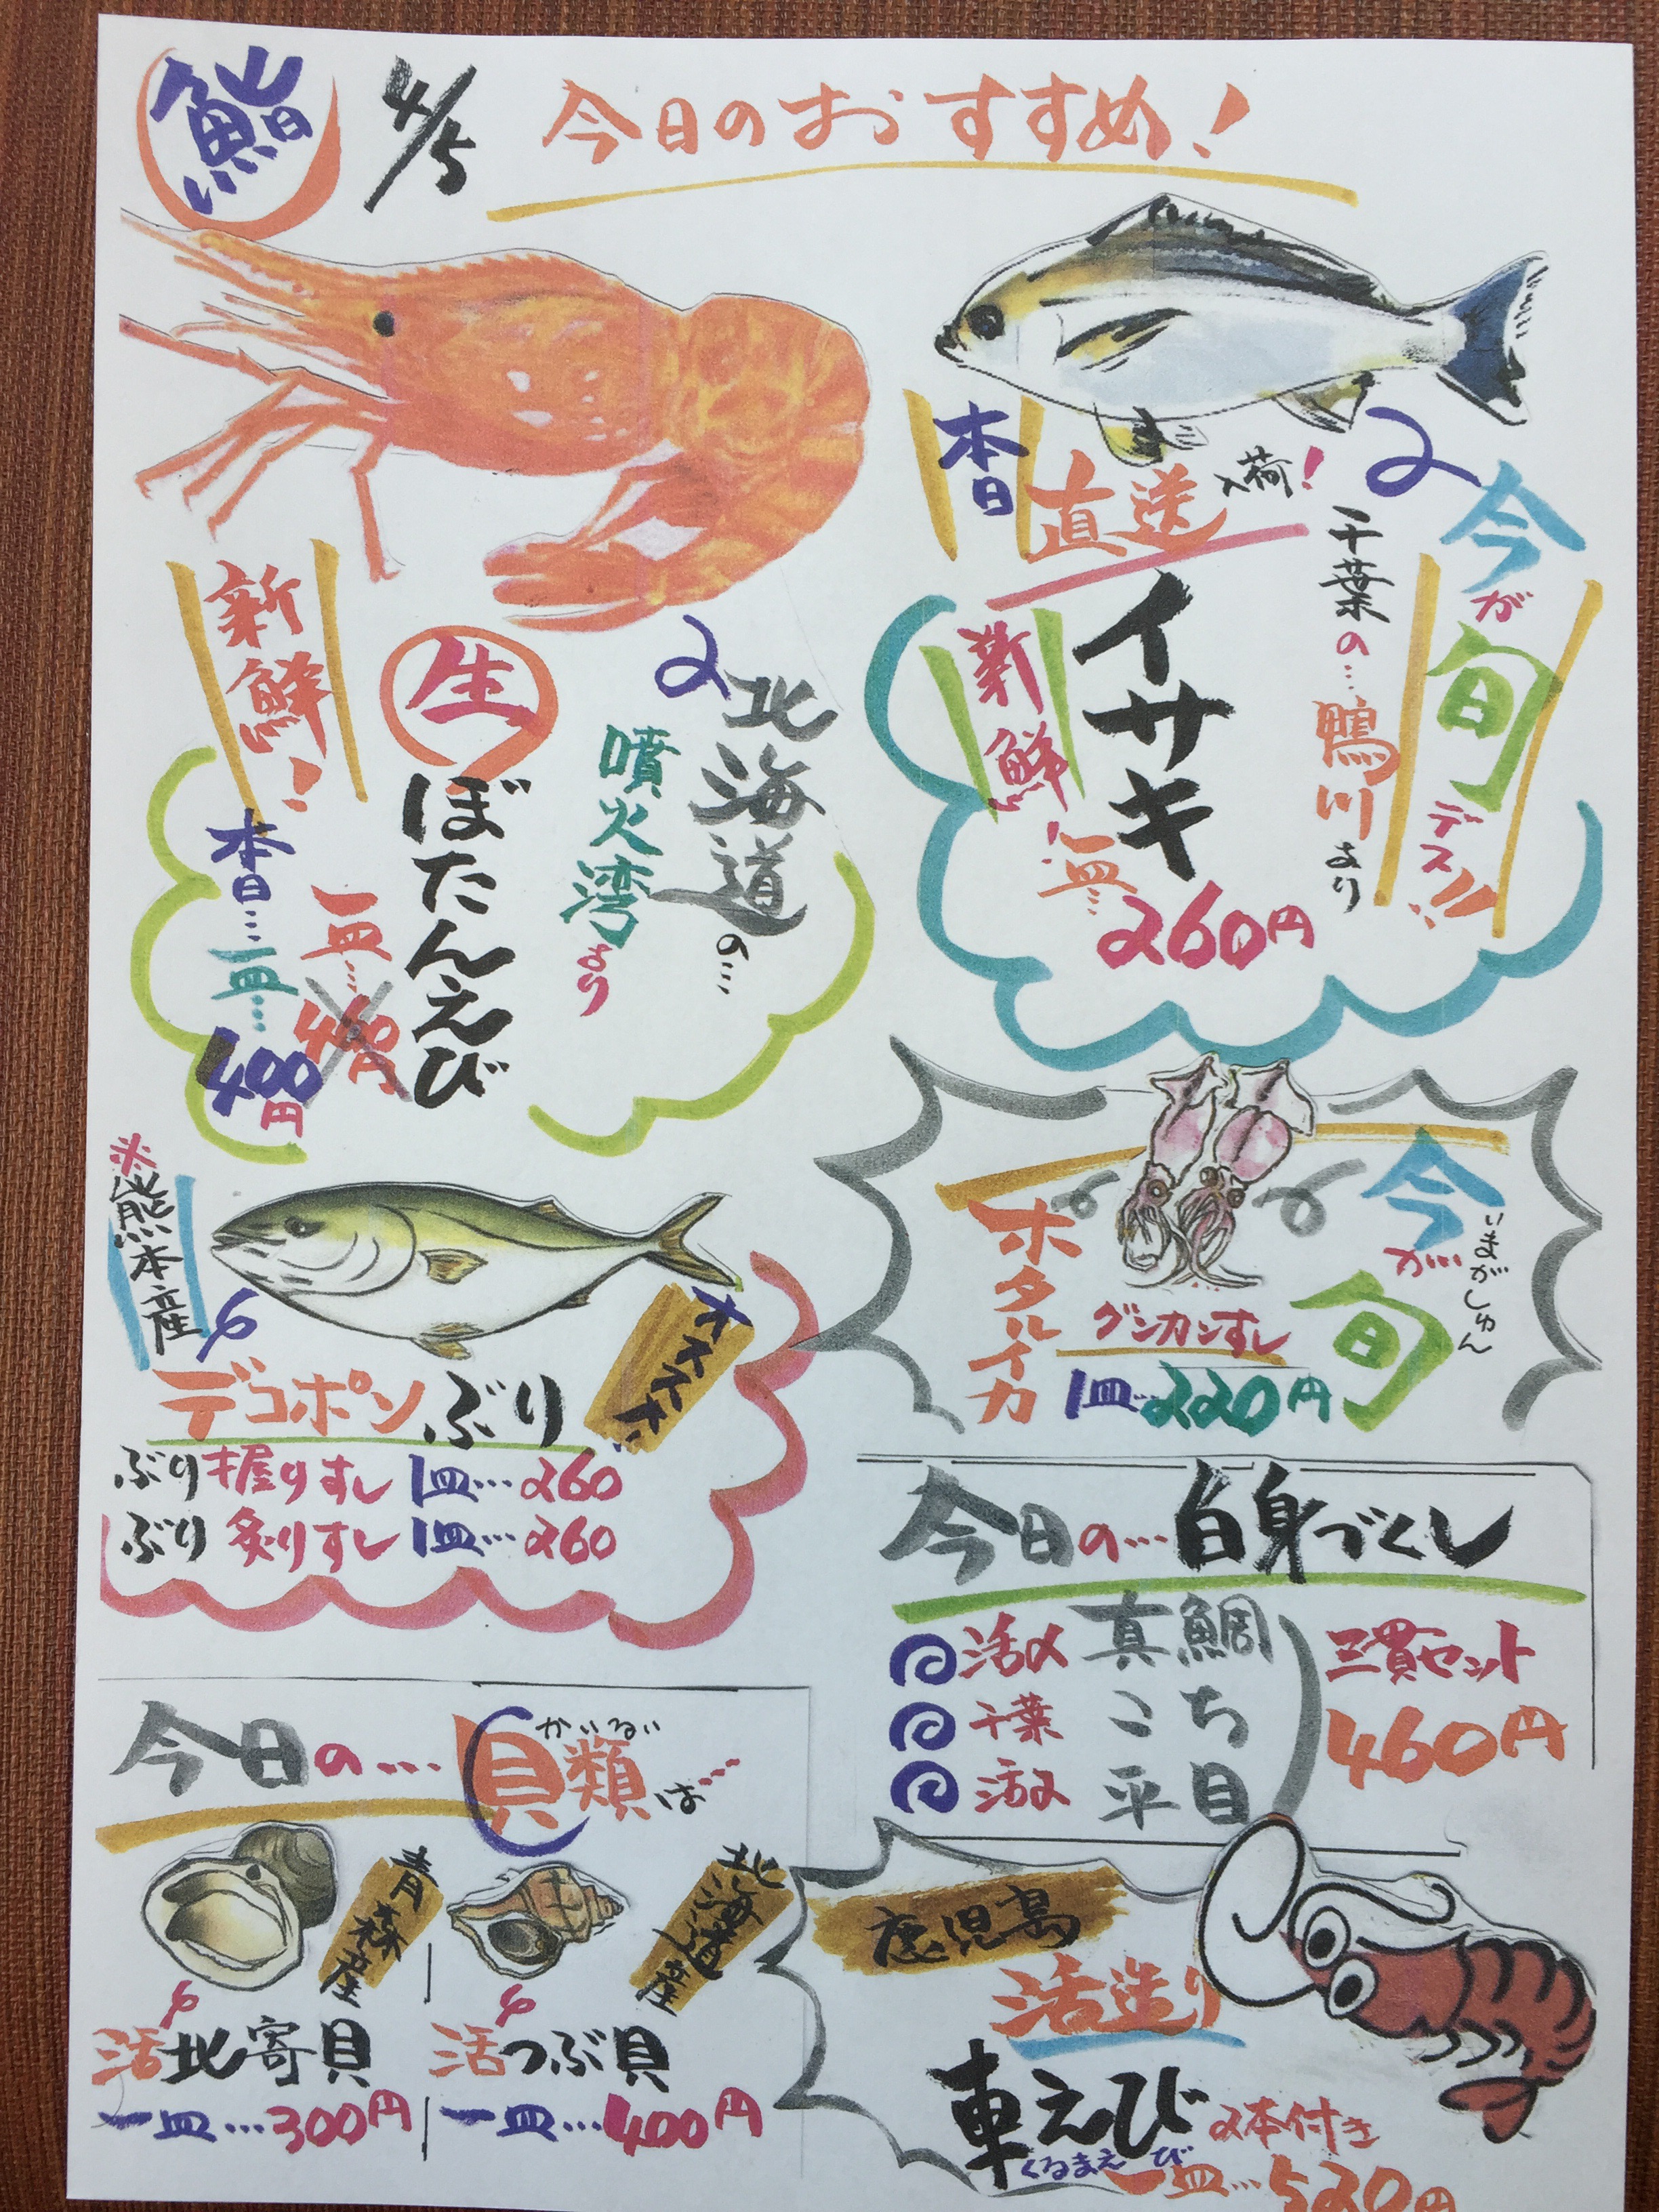 鮨
4/5
今日のおすすめ!
本日
直送
入荷!
今が旬デス!!
千葉の…鴨川より
イサキ
新鮮!
一皿…
260円
新鮮!
生
ぼたんえび
北海道の…
噴火湾より
一皿…460円
本日…一皿…400円
※熊本産
オススメ
デコポンぶり
ぶり握りすし 1皿…260
ぶり炙りすし 1皿…260
今が…旬
いまがしゅん
ホタルイカ
グンカンすし
1皿…220円
今日の…白身づくし
活〆 真鯛
千葉 こち
活〆 平目
三貫セット
460円
今日の…貝類は…
かいるい
青森産
活北寄貝
一皿…300円
北海道産
活つぶ貝
一皿…400円
鹿児島
活造り
車えび
くるまえび
2本付き
一皿…520円